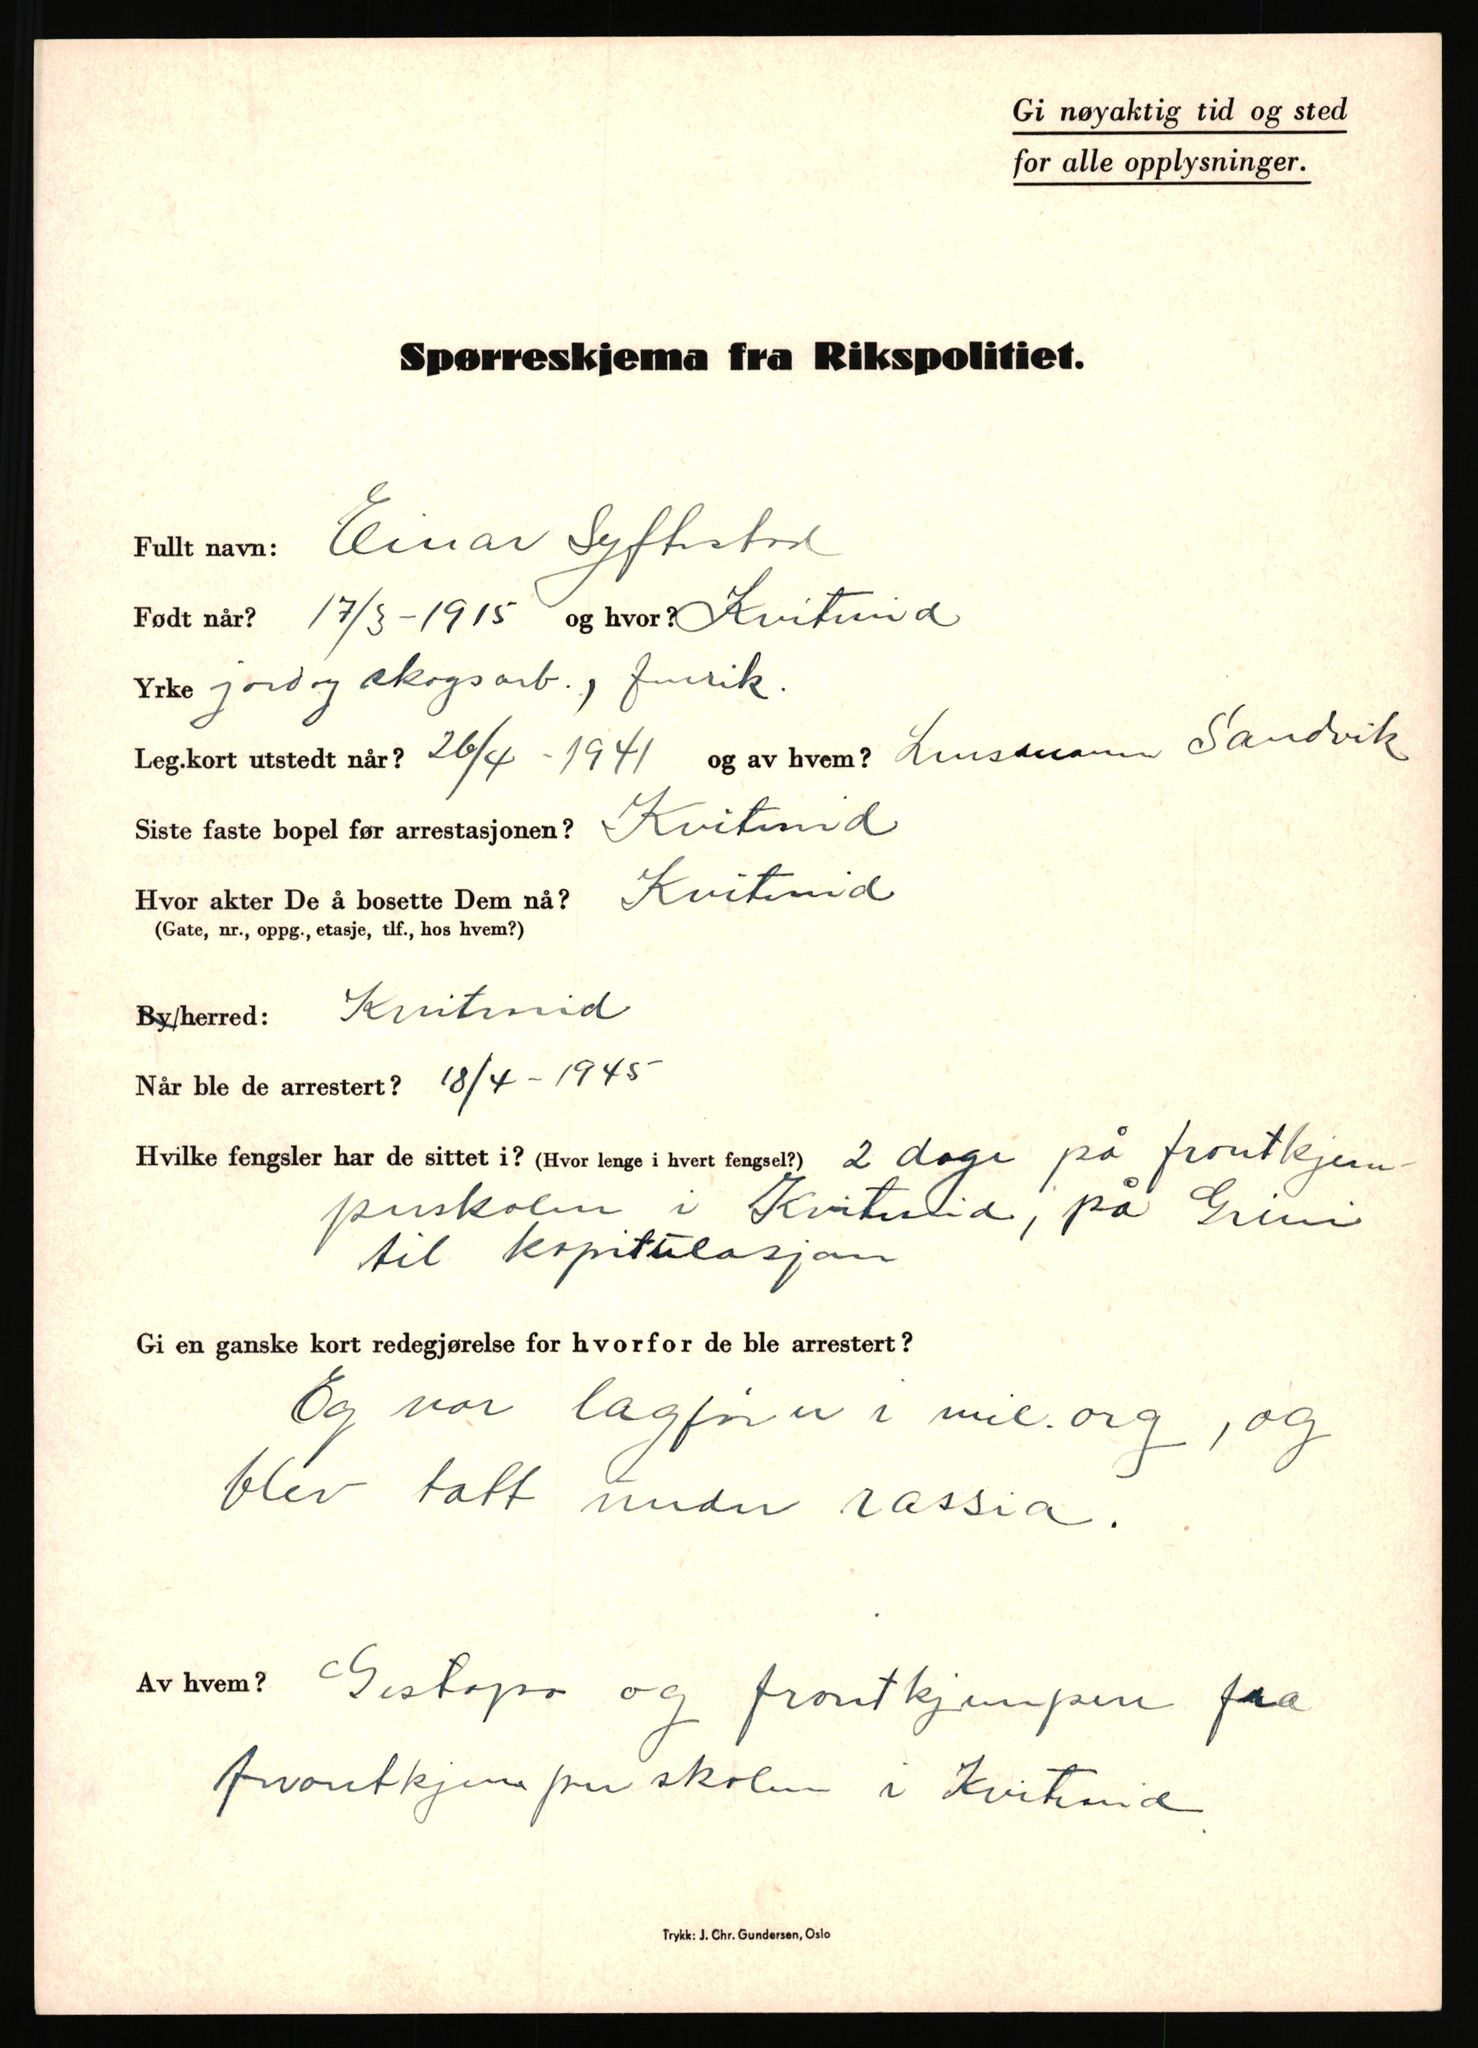 Gi nøyaktig tid og sted
for alle opplysninger.
Spørreskjema fra Rikspolitiet.
Fullt navn: Einar Syftestad
Født når? 17/3-1915 og hvor? Kviteseid
Yrke jord og skogsarb.,
Leg.kort utstedt når? 26/4 - 1941 og av hvem? Lensmann Sandvik
Siste faste bopel før arrestasjonen? Kviteseid
Hvor akter De å bosette Dem nå? Kviteseid
(Gate, nr., oppg., etasje, tlf., hos hvem?)
By/herred: Kviteseid
Når ble de arrestert? 18/4 - 1945
Hvilke fengsler har de sittet i? (Hvor lenge i hvert fengsel?) 2 dage på frontkjem-
perskolen i Kviteseid, på Grini
til kapitulasjon
Gi en ganske kort redegjørelse for hvorfor de ble arrestert?
Eg var lagfører i mil.org, og
blev tatt under rassia.
Av hvem? Gestapo og frontkjempere fra
frontkjemperskolen i Kviteseid
Trykk: J. Chr. Gundersen, Oslo